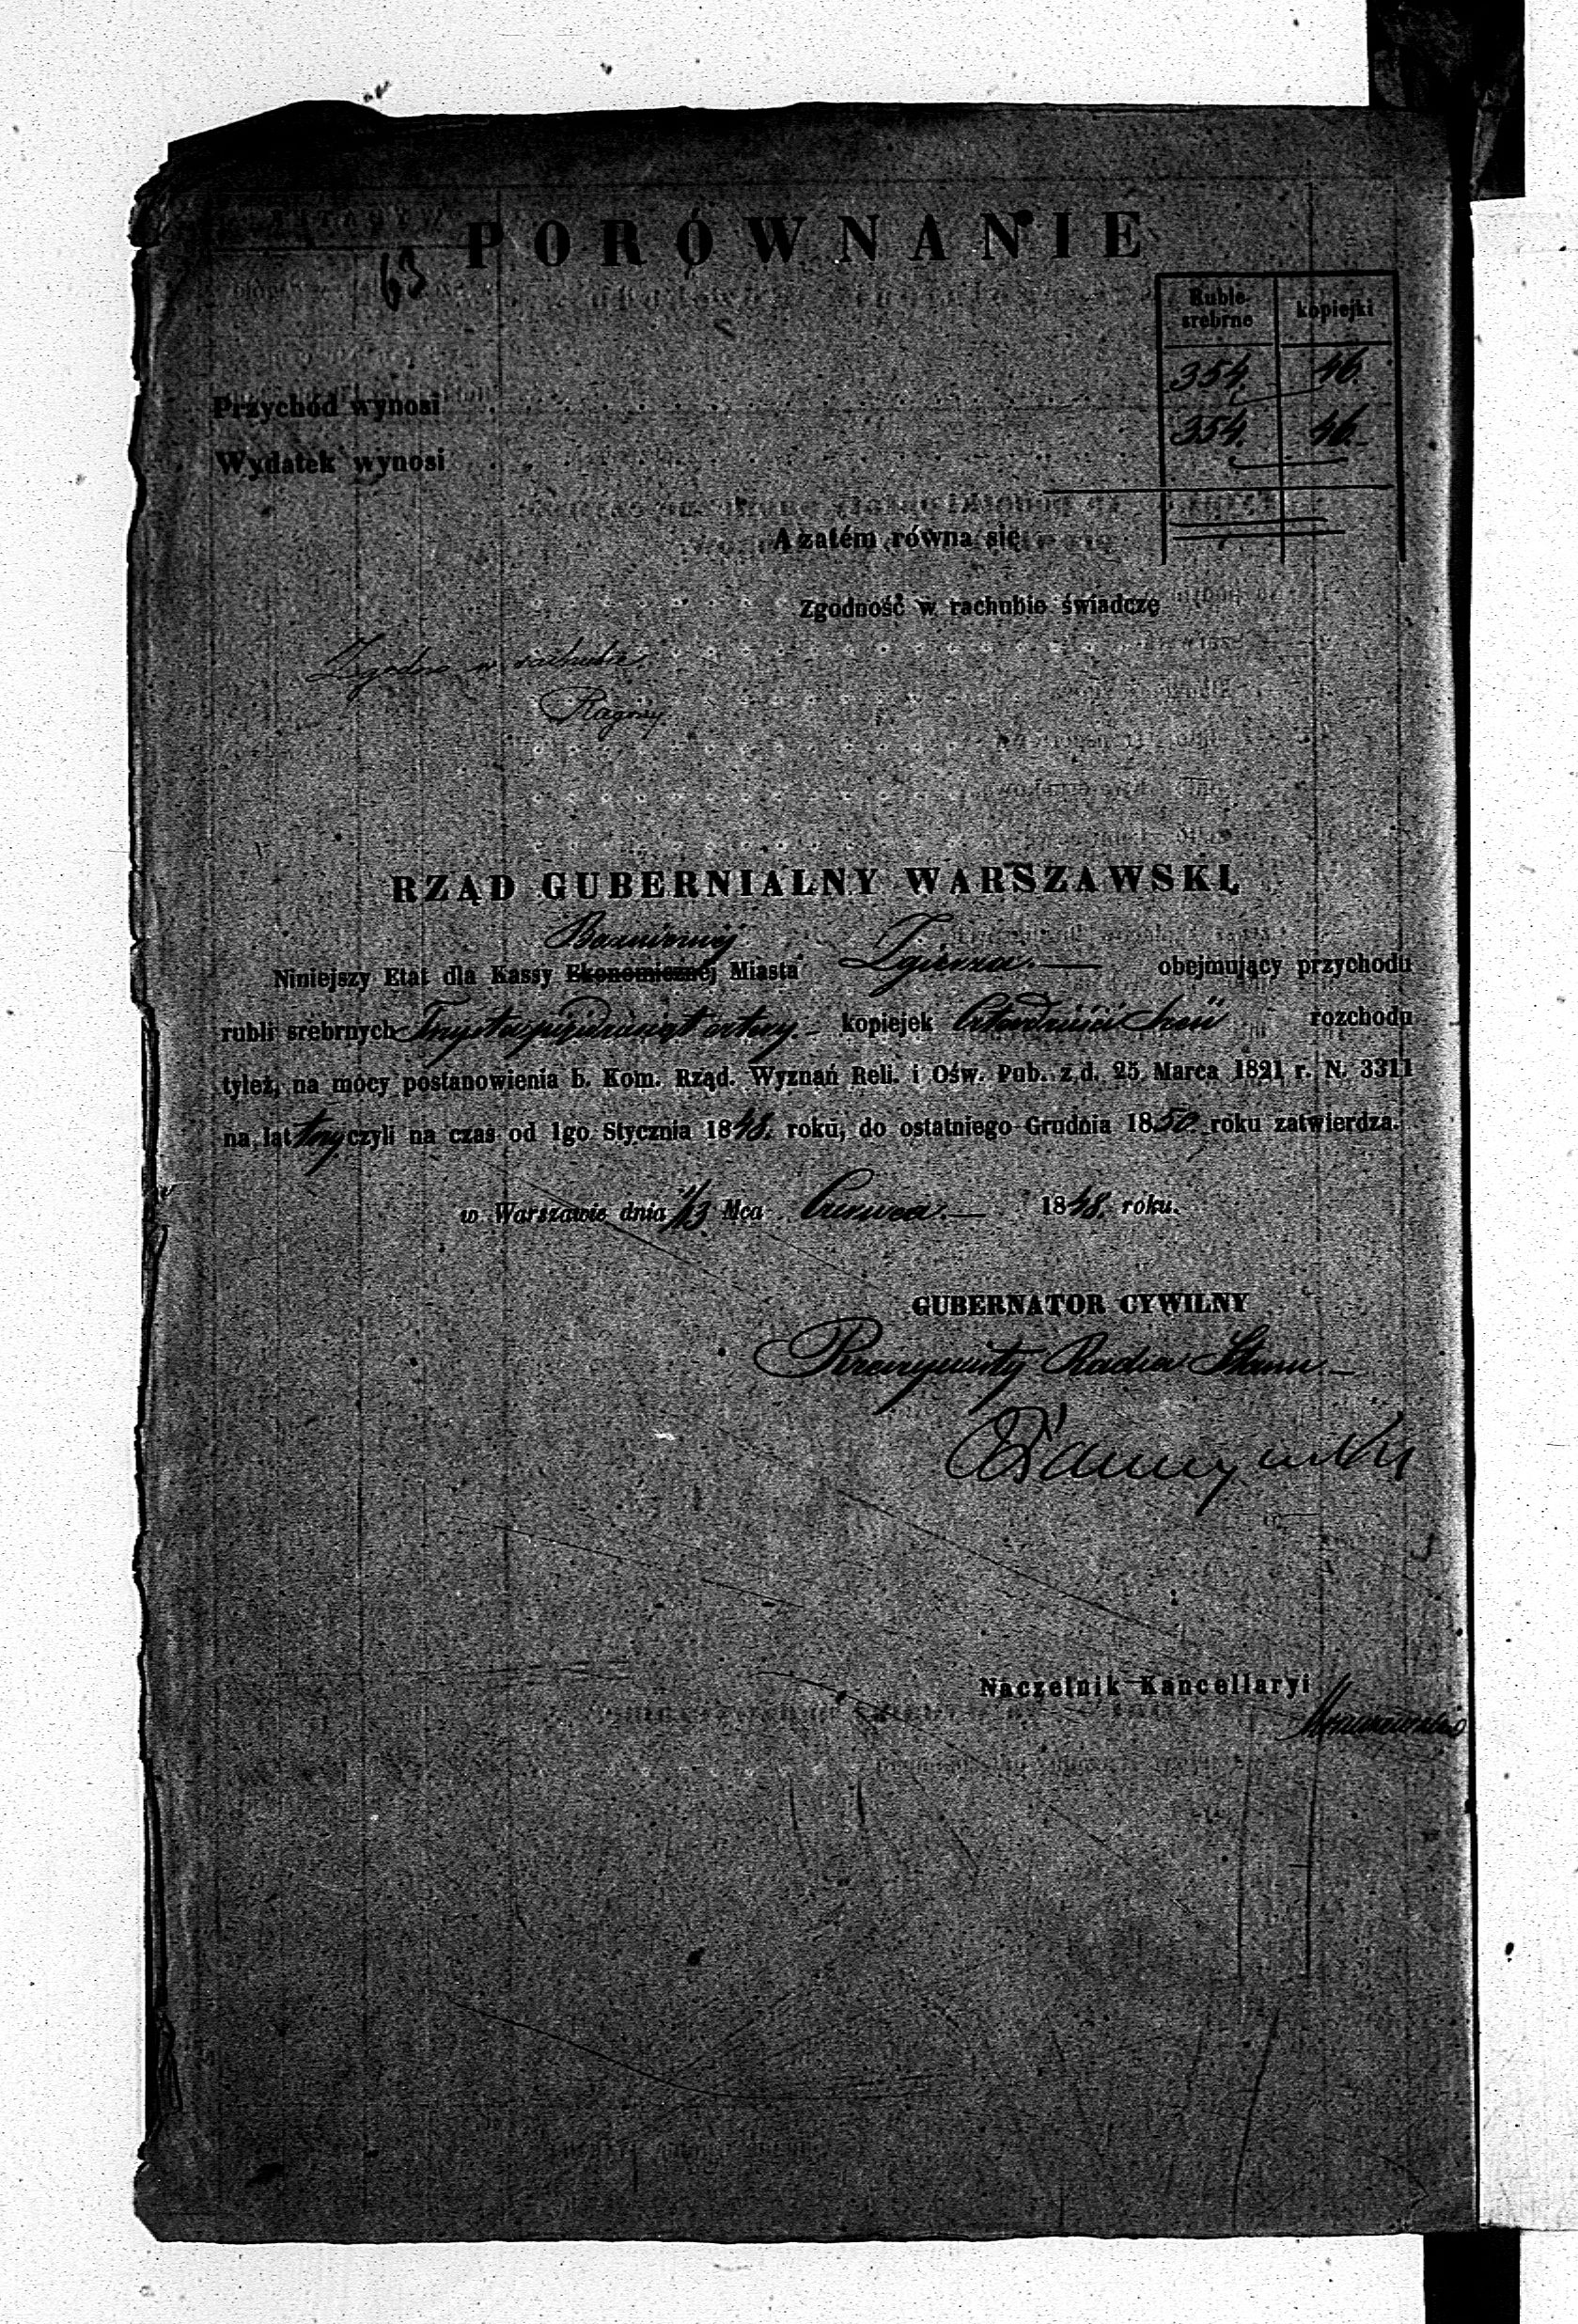 PORÓWNANIE
63
Ruble srebrne kopiejki
Przychód wynosi 354. 46.
Wydatek wynosi 354. 46.
A zatém równa się
Zgodność w rachubie świadczę
Zgodno w rachubie
RZĄD GUBERNIALNY WARSZAWSKI,
Bożnicznéj
Niniejszy Etat dla Kassy Ekonomicznéj Miasta Zgierza.— obejmujący przychodu
rubli srebrnych Trzysta pięćdziesiąt cztery.— kopiejek Czterdzieści sześć rozchodu
tyleż, na mocy postanowienia b. Kom. Rząd. Wyznań Reli. i Ośw. Pub. z d. 25 Marca 1821 r. N. 3311
na lat trzy czyli na czas od 1go Stycznia 1848. roku, do ostatniego Grudnia 1850 roku zatwierdza.
w Warszawie dnia 1/13 Mca Czerwca.— 1848. roku.
GUBERNATOR CYWILNY
Rzeczywisty Radca Stanu—
Naczelnik Kancellaryi